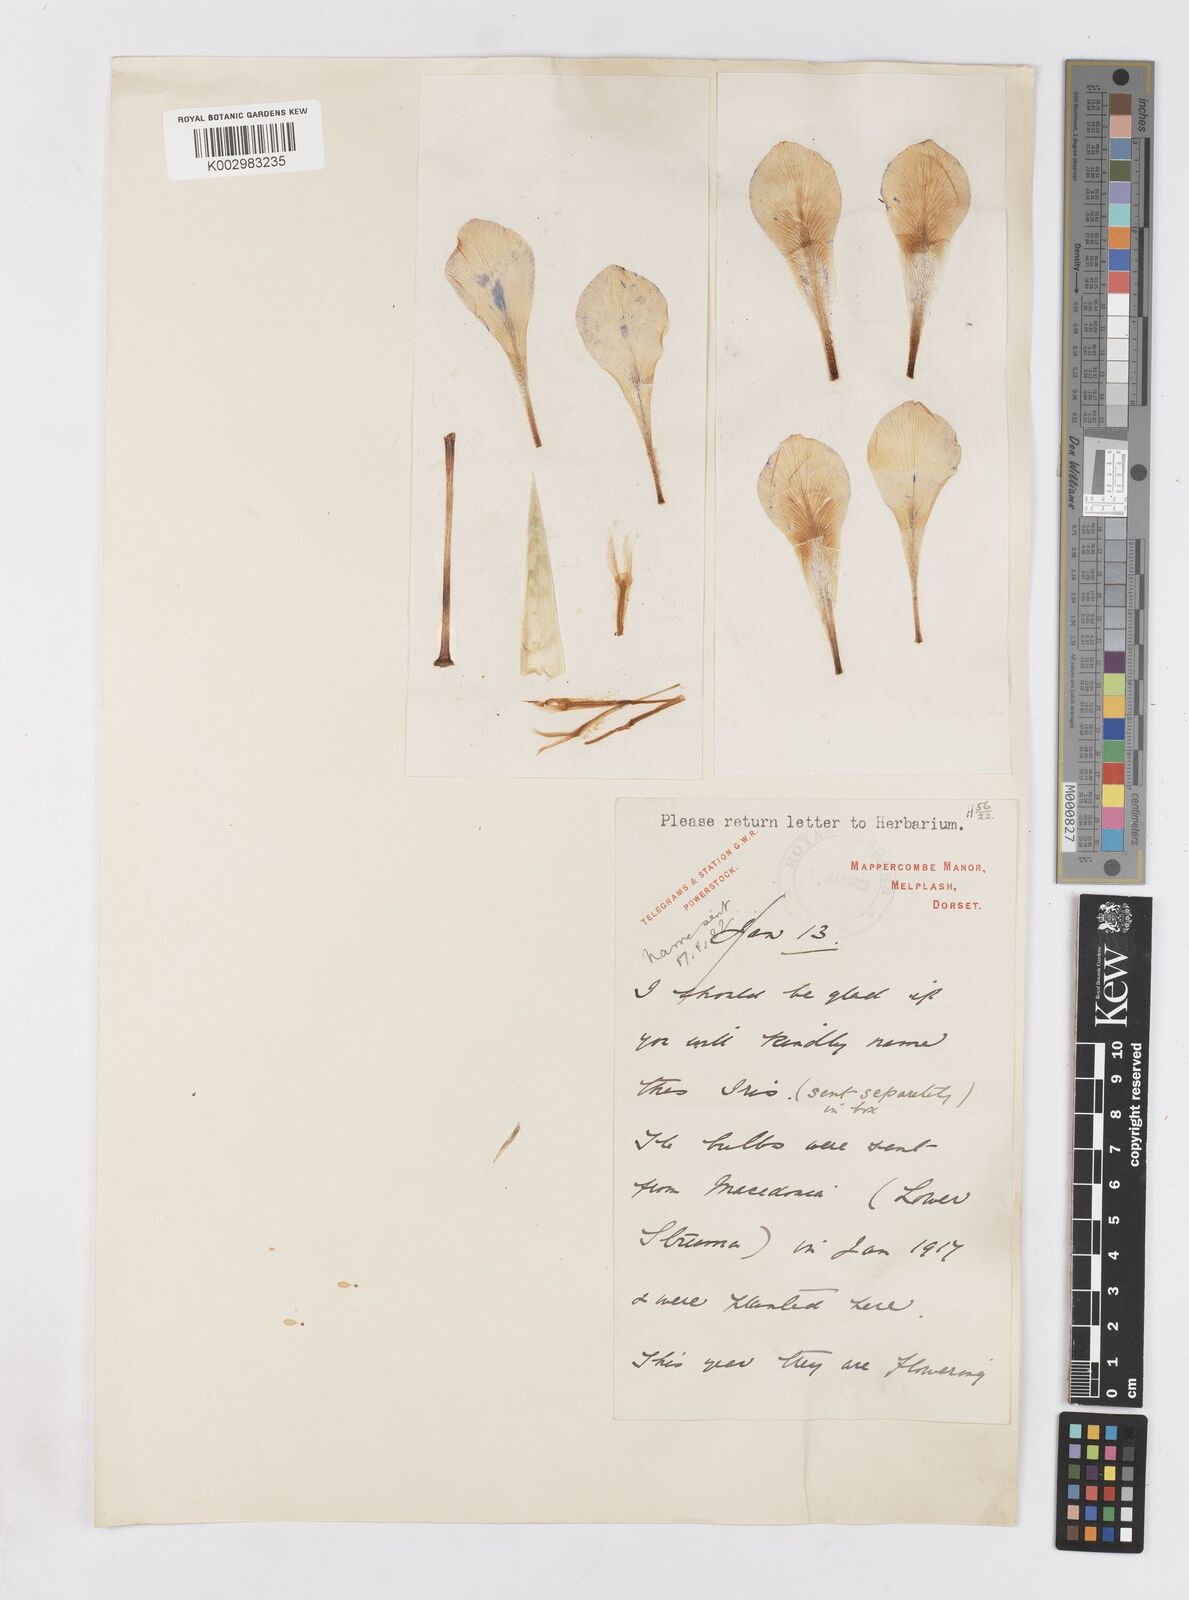 ROYAL BOTANIC GARDENS KEW
K002983235
Please return letter to Herbarium.
H 56/22.
TELEGRAMS & STATION G.W.R.
POWERSTOCK.
MAPPERCOMBE MANOR,
MELPLASH,
DORSET.
Name sent
Jan 13.
I should be glad if
you will kindly name
this Iris. (sent separately)
in box
The bulbs were sent
from Macedonia (Lower
Struma) in Jan 1917
& were planted here.
This year they are flowering
inches
Density
Don Williams
M000827
centimeters
Kew
Royal Botanic Gardens
copyright reserved
0 1 2 3 4 5 6 7 8 9 10
cm